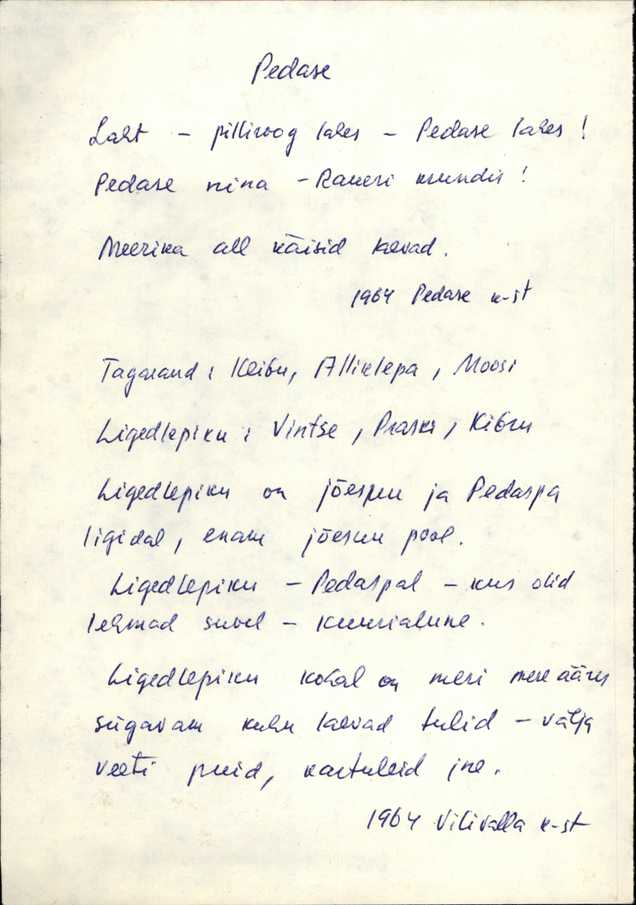 Pedase
Laht - pilliroog lahes - Pedase lahes!
Pedase nina - Raueri
Meerika all käisid laevad.
1964 Pedase k-st
Tagarand: Keibu, Alliklepa, Moosi
Ligedlepiku: Vintse, Praski, Kibru
Ligedlepiku on jõesuu ja Pedaspa
ligidal, enam jõesuu pool.
Ligedlepiku - Pedaspal - kus olid
lehmad suvel - kuurialune.
Ligedlepiku kohal on meri mere ääres
sügavam kuhu laevad tulid - välja
veeti puid, kartuleid jne.
1964 Vilivalla k-st